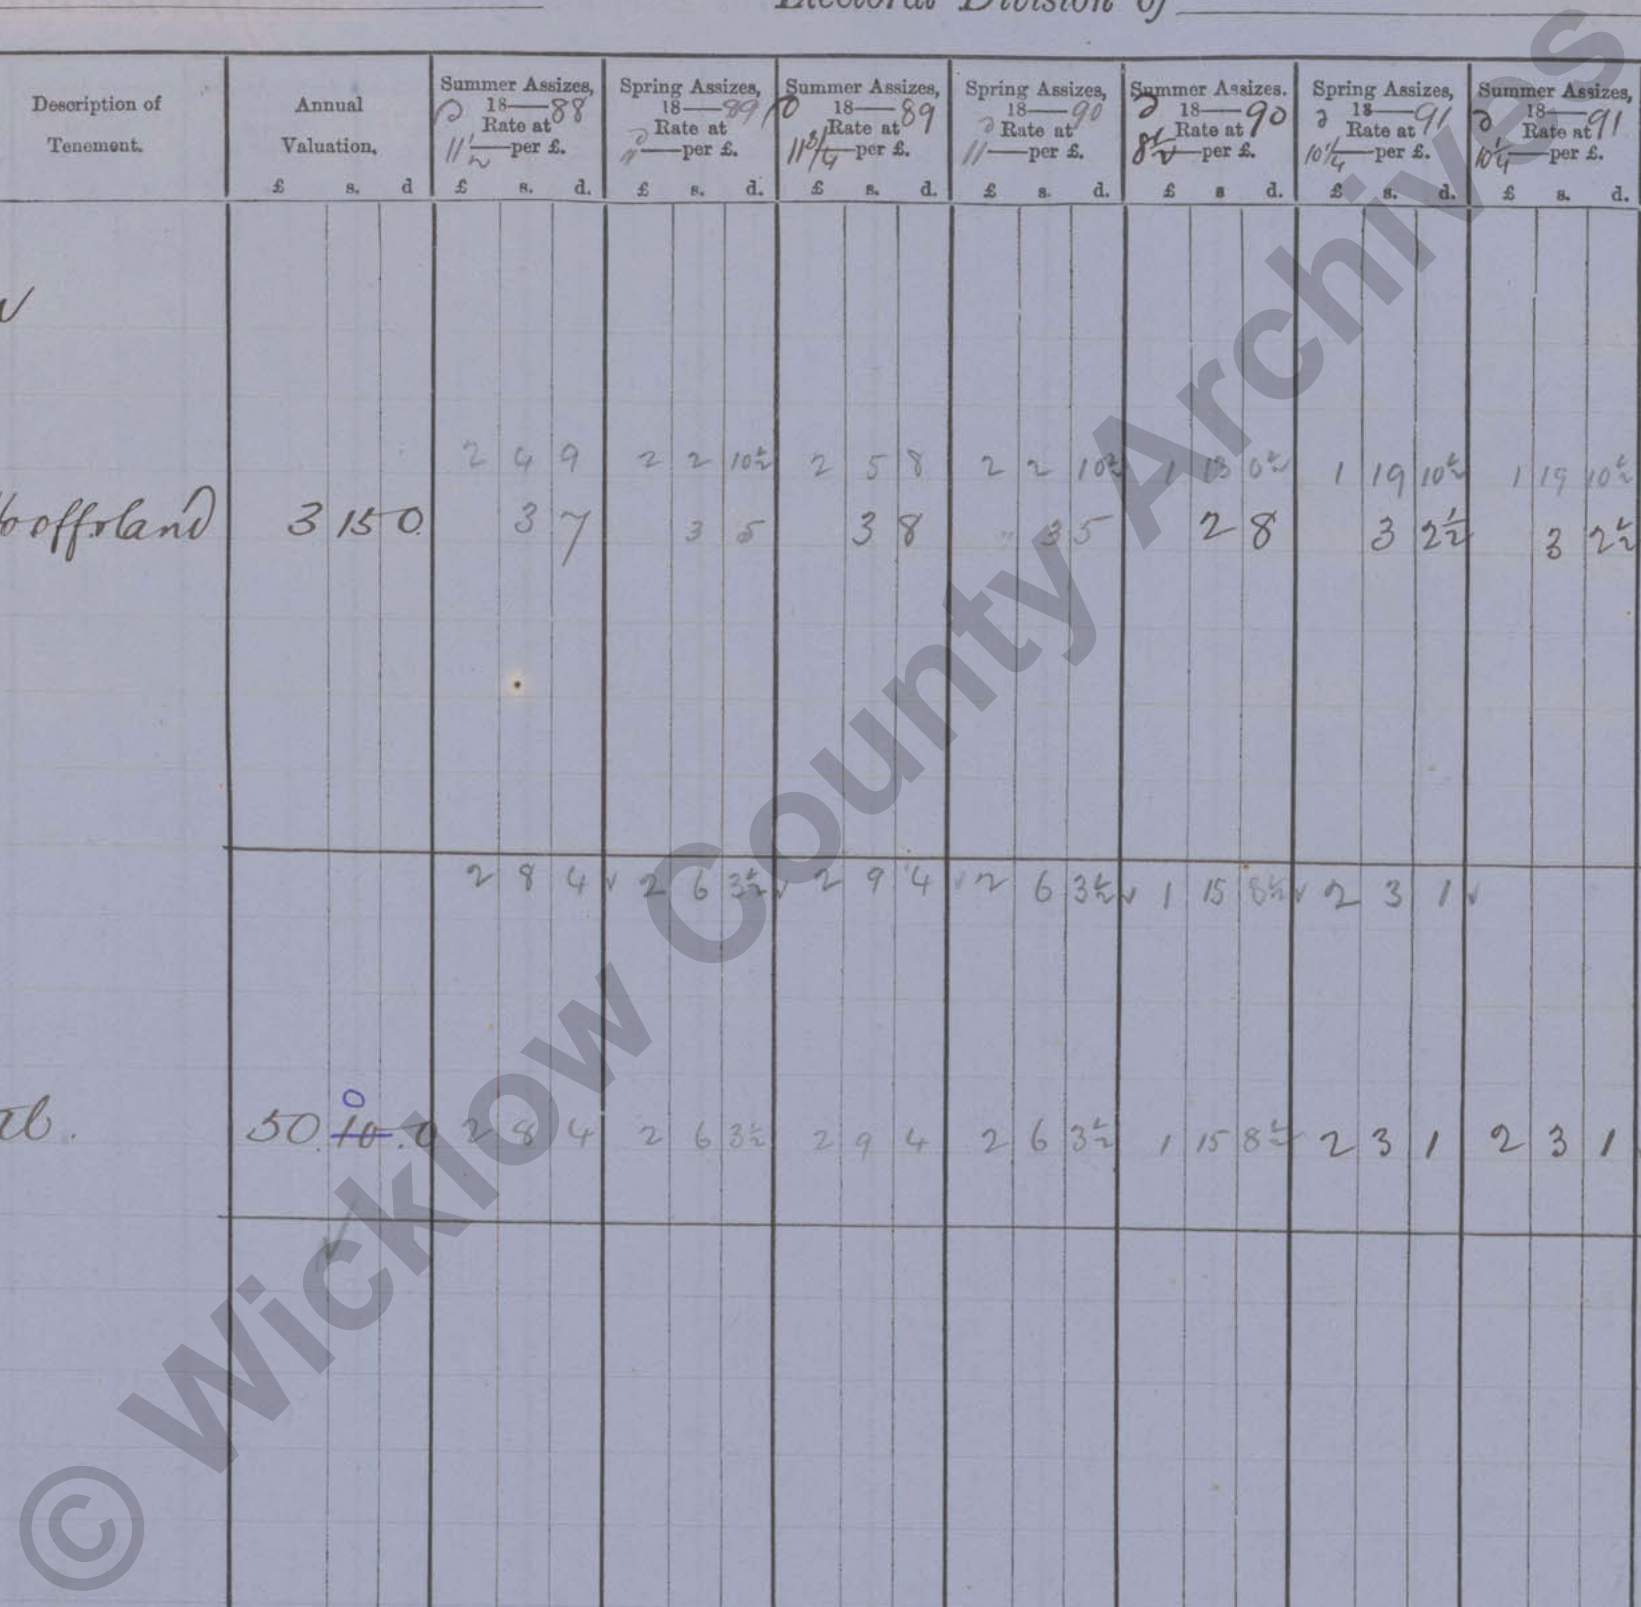 Electoral Division of
Description of Tenement. Annual Valuation. Summer Assizes, 18—88 Rate at 11½ d per £. Spring Assizes, 18—89 Rate at 11 d per £. Summer Assizes, 18—89 Rate at 11¾ d per £. Spring Assizes, 18—90 Rate at 11 d per £. Summer Assizes. 18—90 Rate at 8½ d per £. Spring Assizes, 18—91 Rate at 10¼ d per £. Summer Assizes, 18—91 Rate at 10¼ d per £.
£ s. d £ s. d. £ s. d. £ s. d. £ s. d. £ s d. £ s. d. £ s. d.
2 4 9 2 2 10½ 2 5 8 2 2 10½ 1 13 0½ 1 19 10½ 1 19 10½
offs land 3 15 0 3 7 3 5 3 8 " 3 5 2 8 3 2½ 3 2½
2 8 4 ✓ 2 6 3½ ✓ 2 9 4 ✓ 2 6 3½ ✓ 1 15 8½ ✓ 2 3 1 ✓
0
al. 50. 10. 0 2 8 4 2 6 3½ 2 9 4 2 6 3½ 1 15 8½ 2 3 1 2 3 1
© Wicklow County Archives